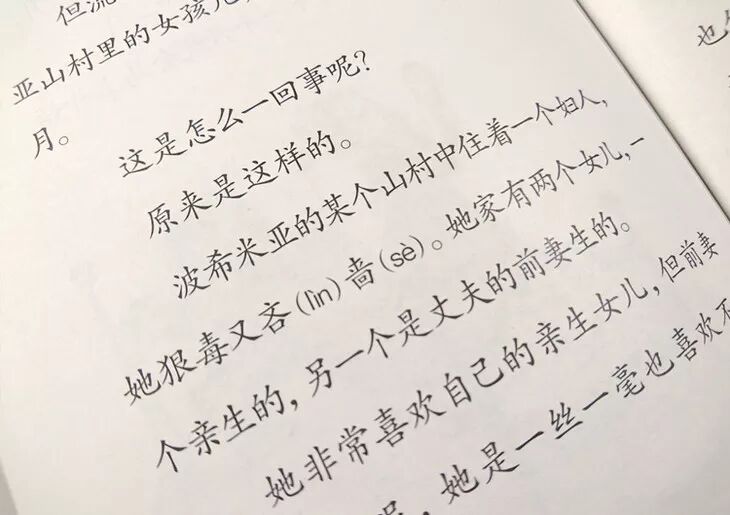 但流
亚山村里的女孩儿
月。
这是怎么一回事呢？
原来是这样的。
波希米亚的某个山村中住着一个妇人，
她狠毒又吝(lìn)啬(sè)。她家有两个女儿，一
个亲生的，另一个是丈夫的前妻生的。
她非常喜欢自己的亲生女儿，但前妻
，她是一丝一毫也喜欢不
也